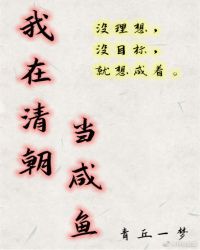 我在清朝
当咸鱼
沒理想，
沒目标，
就想咸着。
青丘一梦